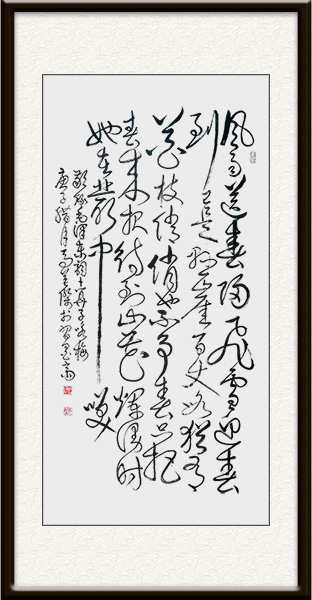 風雨送春归飛雪迎春
到已是悬崖百丈冰猶有
花枝俏俏也不争春只把
春来报待到山花烂漫时
她在丛中笑
毛泽东词卜算子咏梅
庚子腊月